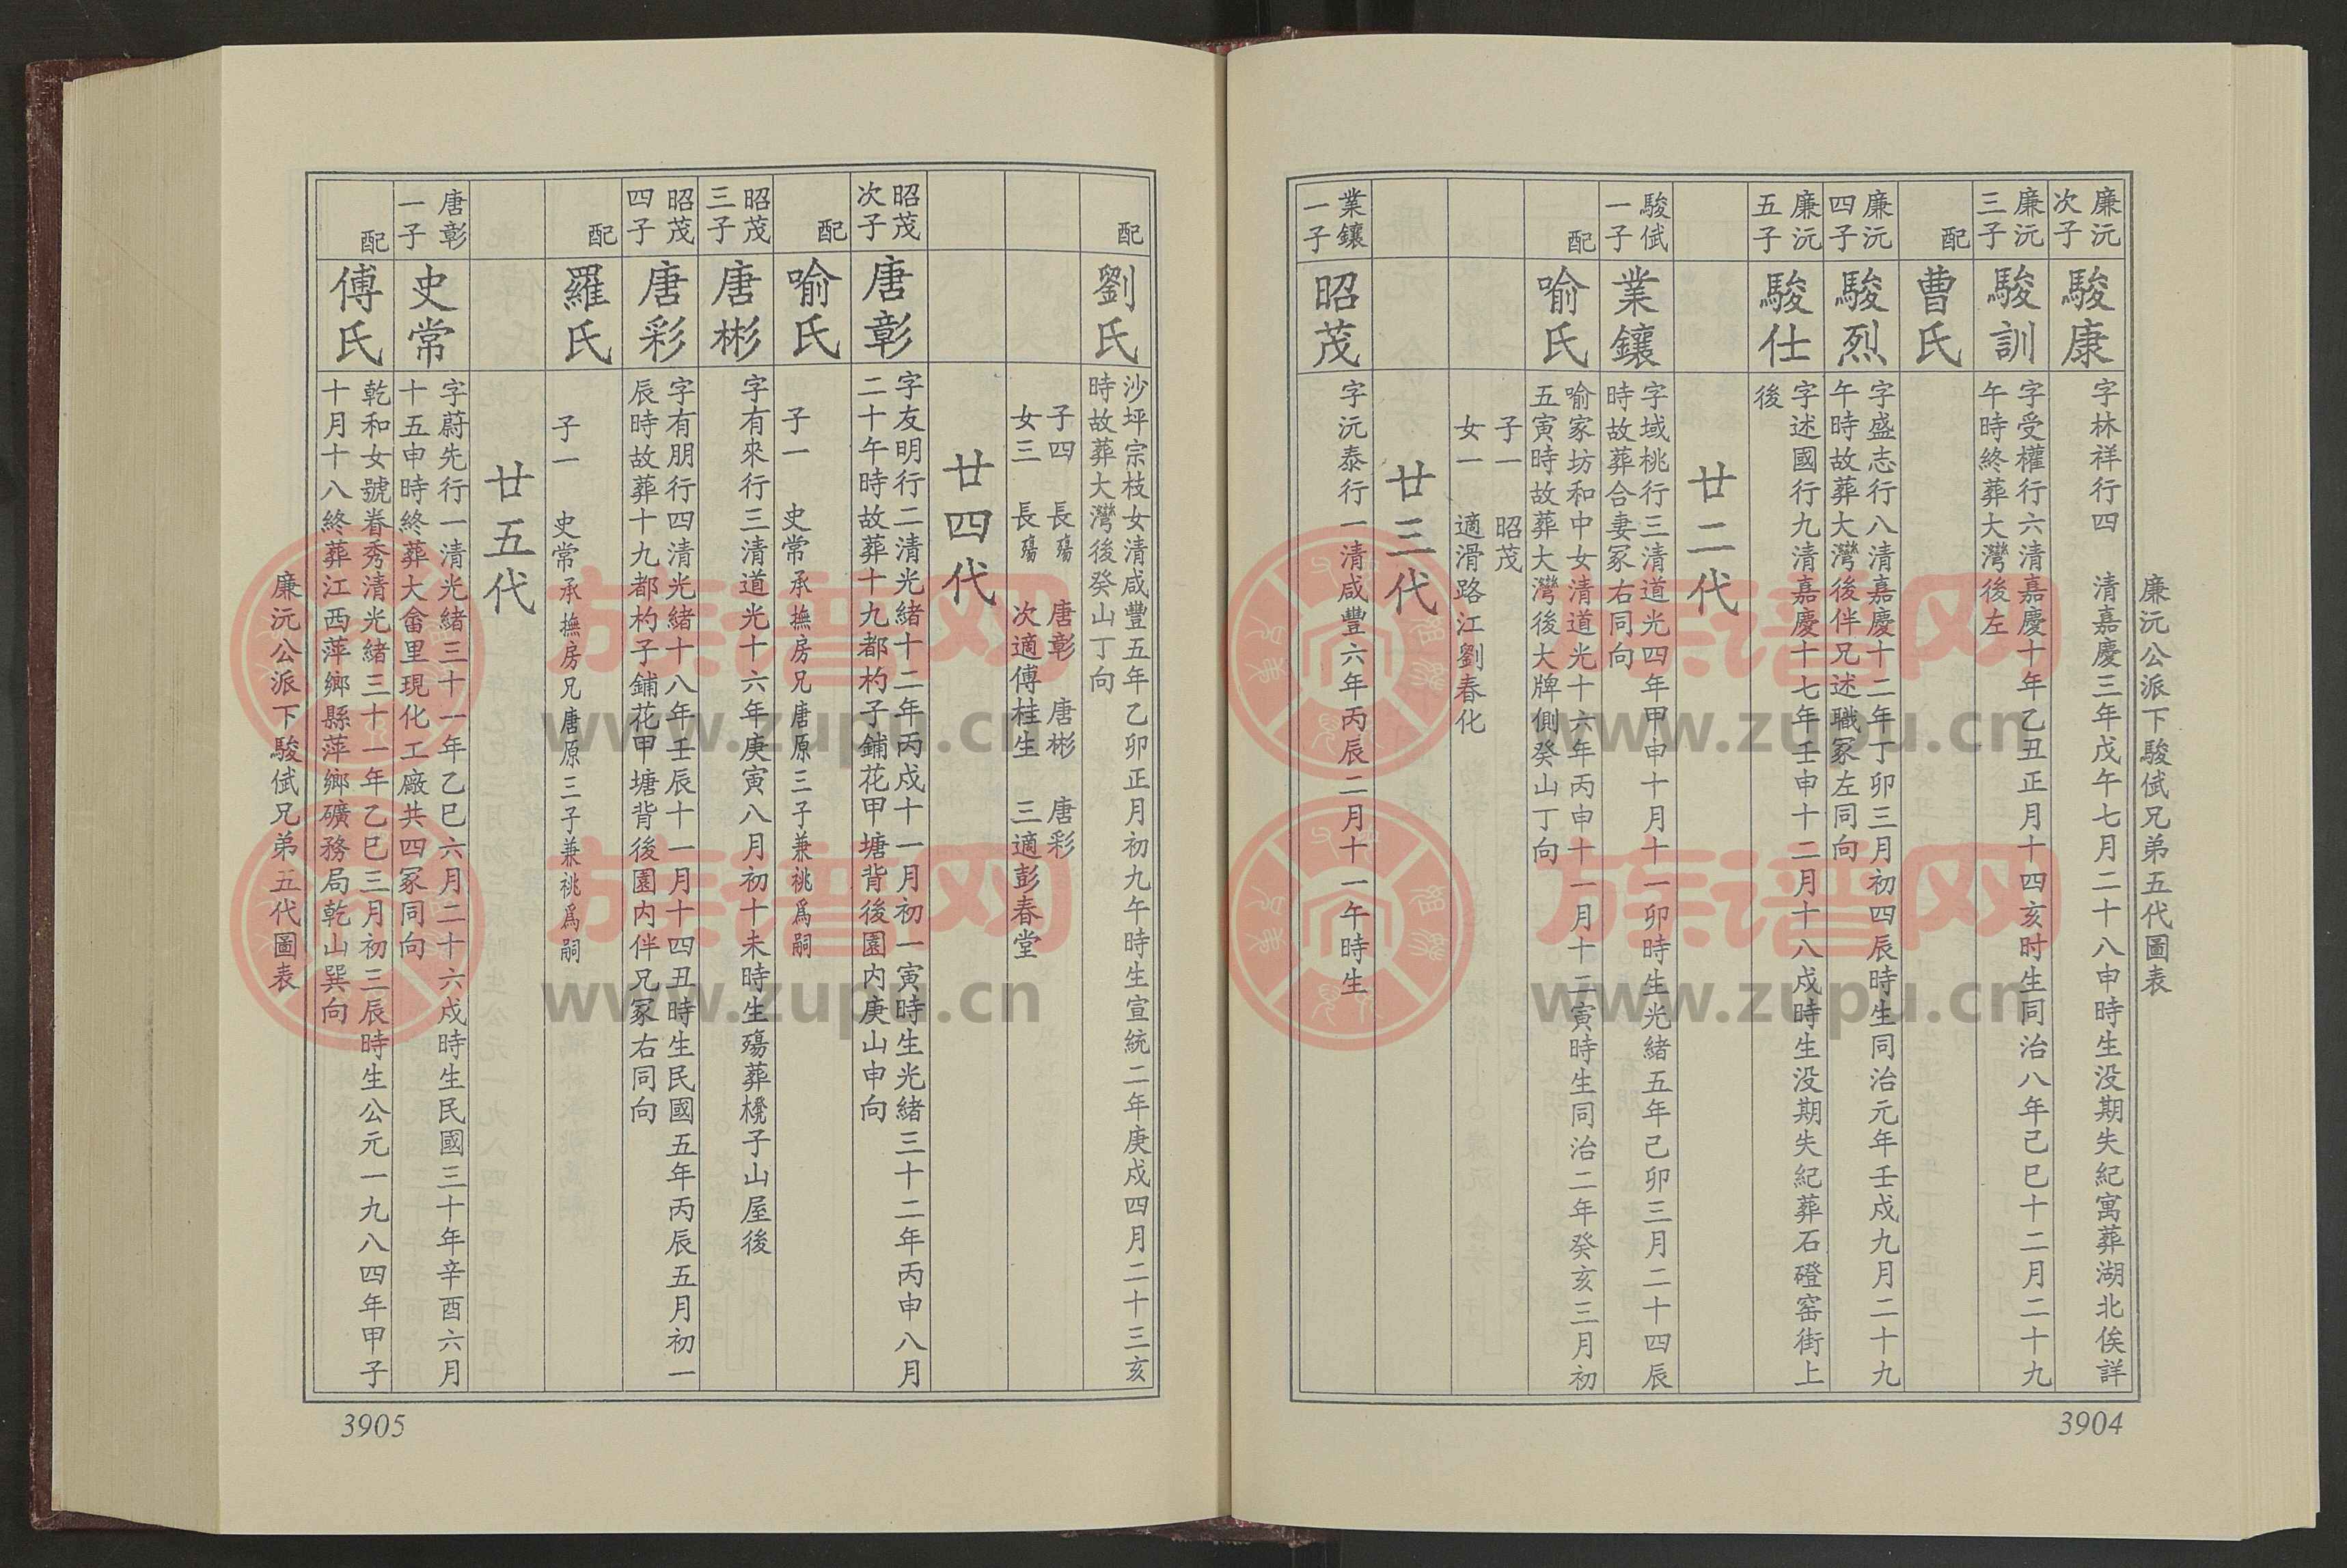 廉沅公派下駿㑜兄弟五代圖表
廉沅次子
駿康
字林祥行四 清嘉慶三年戊午七月二十八申時生没期失紀寓葬湖北俟詳
廉沅三子
駿訓
字受權行六清嘉慶十年乙丑正月十四亥时生同治八年己巳十二月二十九
午時終葬大灣後左
配
曹氏
廉沅四子
駿烈
字盛志行八清嘉慶十二年丁卯三月初四辰時生同治元年壬戌九月二十九
午時故葬大灣後伴兄述職冢左同向
廉沅五子
駿仕
字述國行九清嘉慶十七年壬申十二月十八戌時生没期失紀葬石磴窑街上
後
廿二代
駿㑜一子
業鑲
字域桃行三清道光四年甲申十月十一卯時生光緒五年己卯三月二十四辰
時故葬合妻冢右同向
配
喻氏
喻家坊和中女清道光十六年丙申十一月十二寅時生同治二年癸亥三月初
五寅時故葬大灣後大牌側癸山丁向
子一 昭茂
女一 適滑路江劉春化
廿三代
業鑲一子
昭茂
字沅泰行一清咸豐六年丙辰二月十一午時生
3904
配
劉氏
沙坪宗枝女清咸豐五年乙卯正月初九午時生宣統二年庚戌四月二十三亥
時故葬大灣後癸山丁向
子四 長殤 唐彰 唐彬 唐彩
女三 長殤 次適傅桂生 三適彭春堂
廿四代
昭茂次子
唐彰
字友明行二清光緒十二年丙戌十一月初一寅時生光緒三十二年丙申八月
二十午時故葬十九都杓子鋪花甲塘背後園内庚山申向
配
喻氏
子一 史常承撫房兄唐原三子兼祧爲嗣
昭茂三子
唐彬
字有來行三清道光十六年庚寅八月初十未時生殤葬櫈子山屋後
昭茂四子
唐彩
字有朋行四清光緒十八年壬辰十一月十四丑時生民國五年丙辰五月初一
辰時故葬十九都杓子鋪花甲塘背後園内伴兄冢右同向
配
羅氏
子一 史常承撫房兄唐原三子兼祧爲嗣
廿五代
唐彰一子
史常
字蔚先行一清光緒三十一年乙巳六月二十六戌時生民國三十年辛酉六月
十五申時終葬大畬里現化工廠共四冢同向
配
傅氏
乾和女號眷秀清光緒三十一年乙巳三月初三辰時生公元一九八四年甲子
十月十八終葬江西萍鄉縣萍鄉礦務局乾山巽向
廉沅公派下駿㑜兄弟五代圖表
3905
族谱网
www.zupu.cn
族谱网
www.zupu.cn
族谱网
www.zupu.cn
族谱网
www.zupu.cn